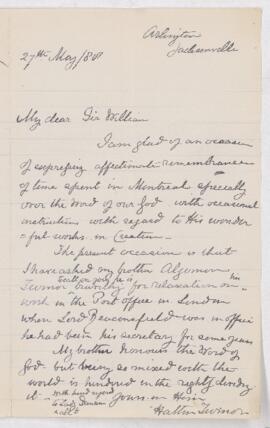 Arlington
Jacksonville
27th May/88
My dear Sir William
I am glad of an occasion
of expressing affectionate remembrance
of time spent in Montreal, specially
over the Word of our God with occasional
instruction with regard to His wonder
=ful works in Creation —
The present occasion is that
I have asked my brother Algernon
Turnor travelling for relaxation
work in the Post office in London
when Lord Beaconsfield was in office
he had been his secretary for some years
My brother honours the Word of
God but being so mixed with the
world is hindered in the rightly dividing
it — Yours in Him
with kind regard
to Lady Dawson
& all